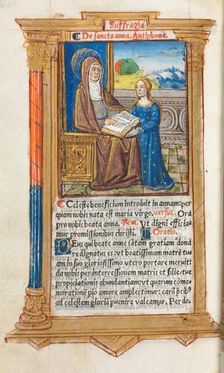 Suffragia
De sancta anna. Antiphone.
Celeste beneficium introiuit in annam per
quam nobis nata est maria virgo. versus. Ora
pro nobis beata anna. Ut digni efficia
mur promissionibus christi. Oratio.
Deus qui beate anne tãtam gratiam donare
dignatus es vt beatissimã matrē tuã
in suo gloriosissimo vtero portare mereretur
da nobis per intercessionem matris et filie tue
propitiationis abundantiam vt quarum com
memorationē pio amore amplectimur, earũ precib9
ad celestem gloriã peruenire valeamus. Per do.